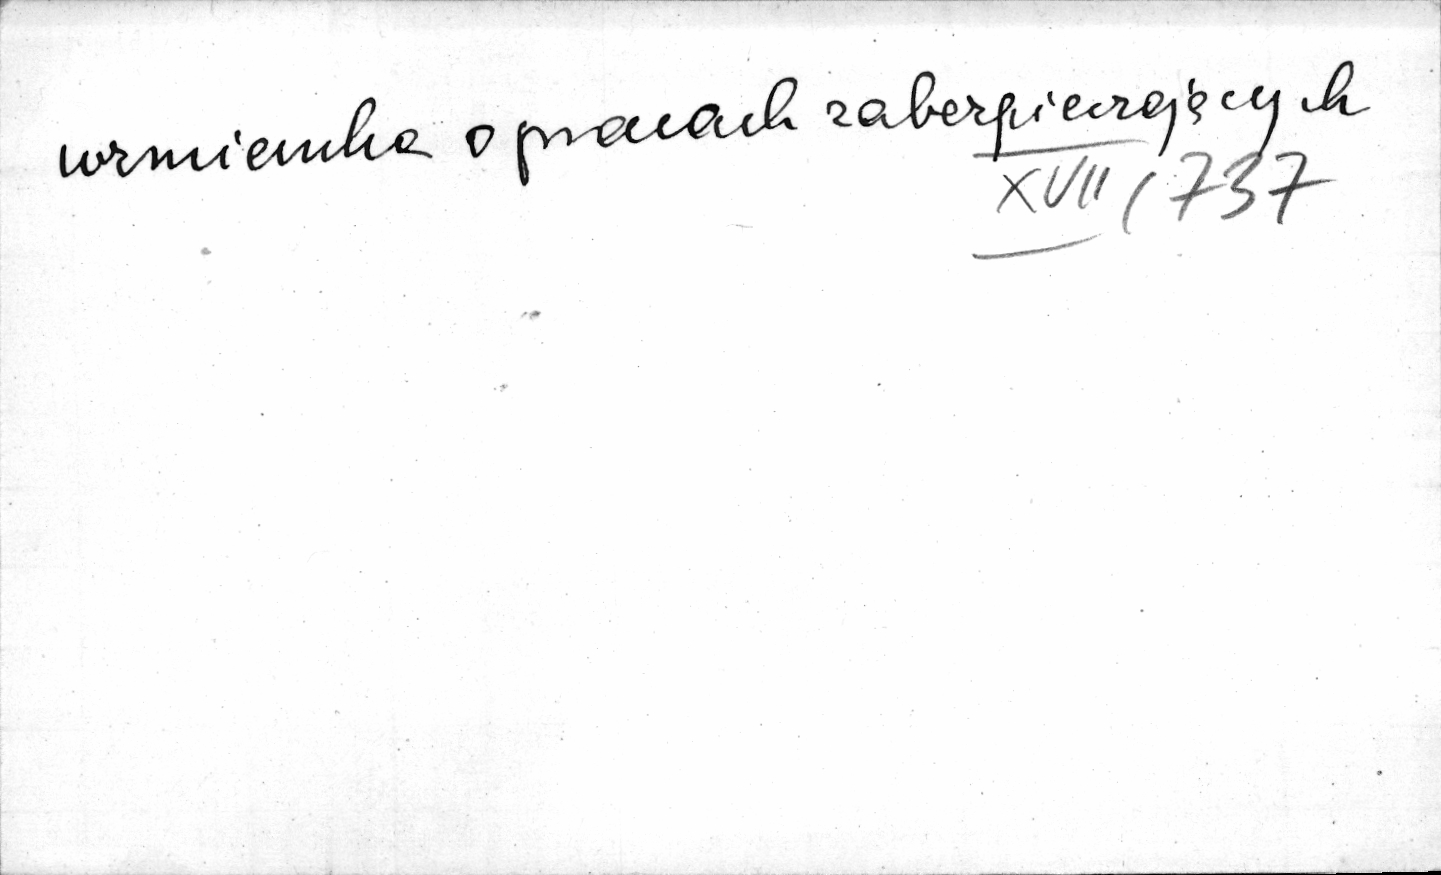 wzmianka o pracach zabezpieczających
XVII/737